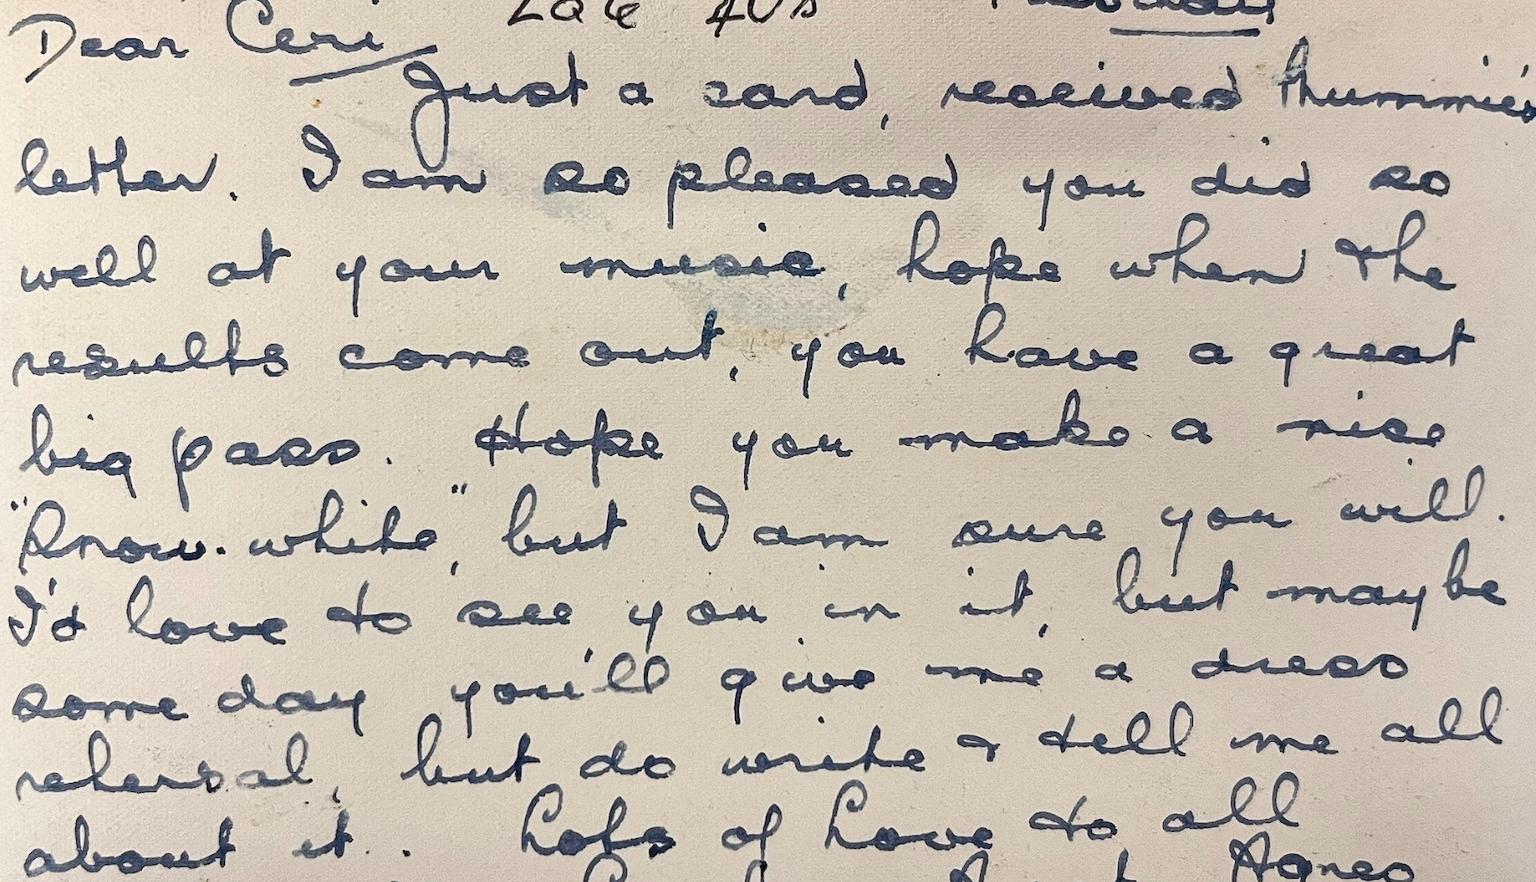 Dear Ceri
Just a card, received Mummie's
letter. I am so pleased you did so
well at your music, hope when the
results come out, you have a great
big pass. Hope you make a nice
"Snow-white", but I am sure you will.
I'd love to see you in it, but maybe
some day you'll give me a dress
rehersal, but do write & tell me all
about it. Lots of Love to all
Agnes